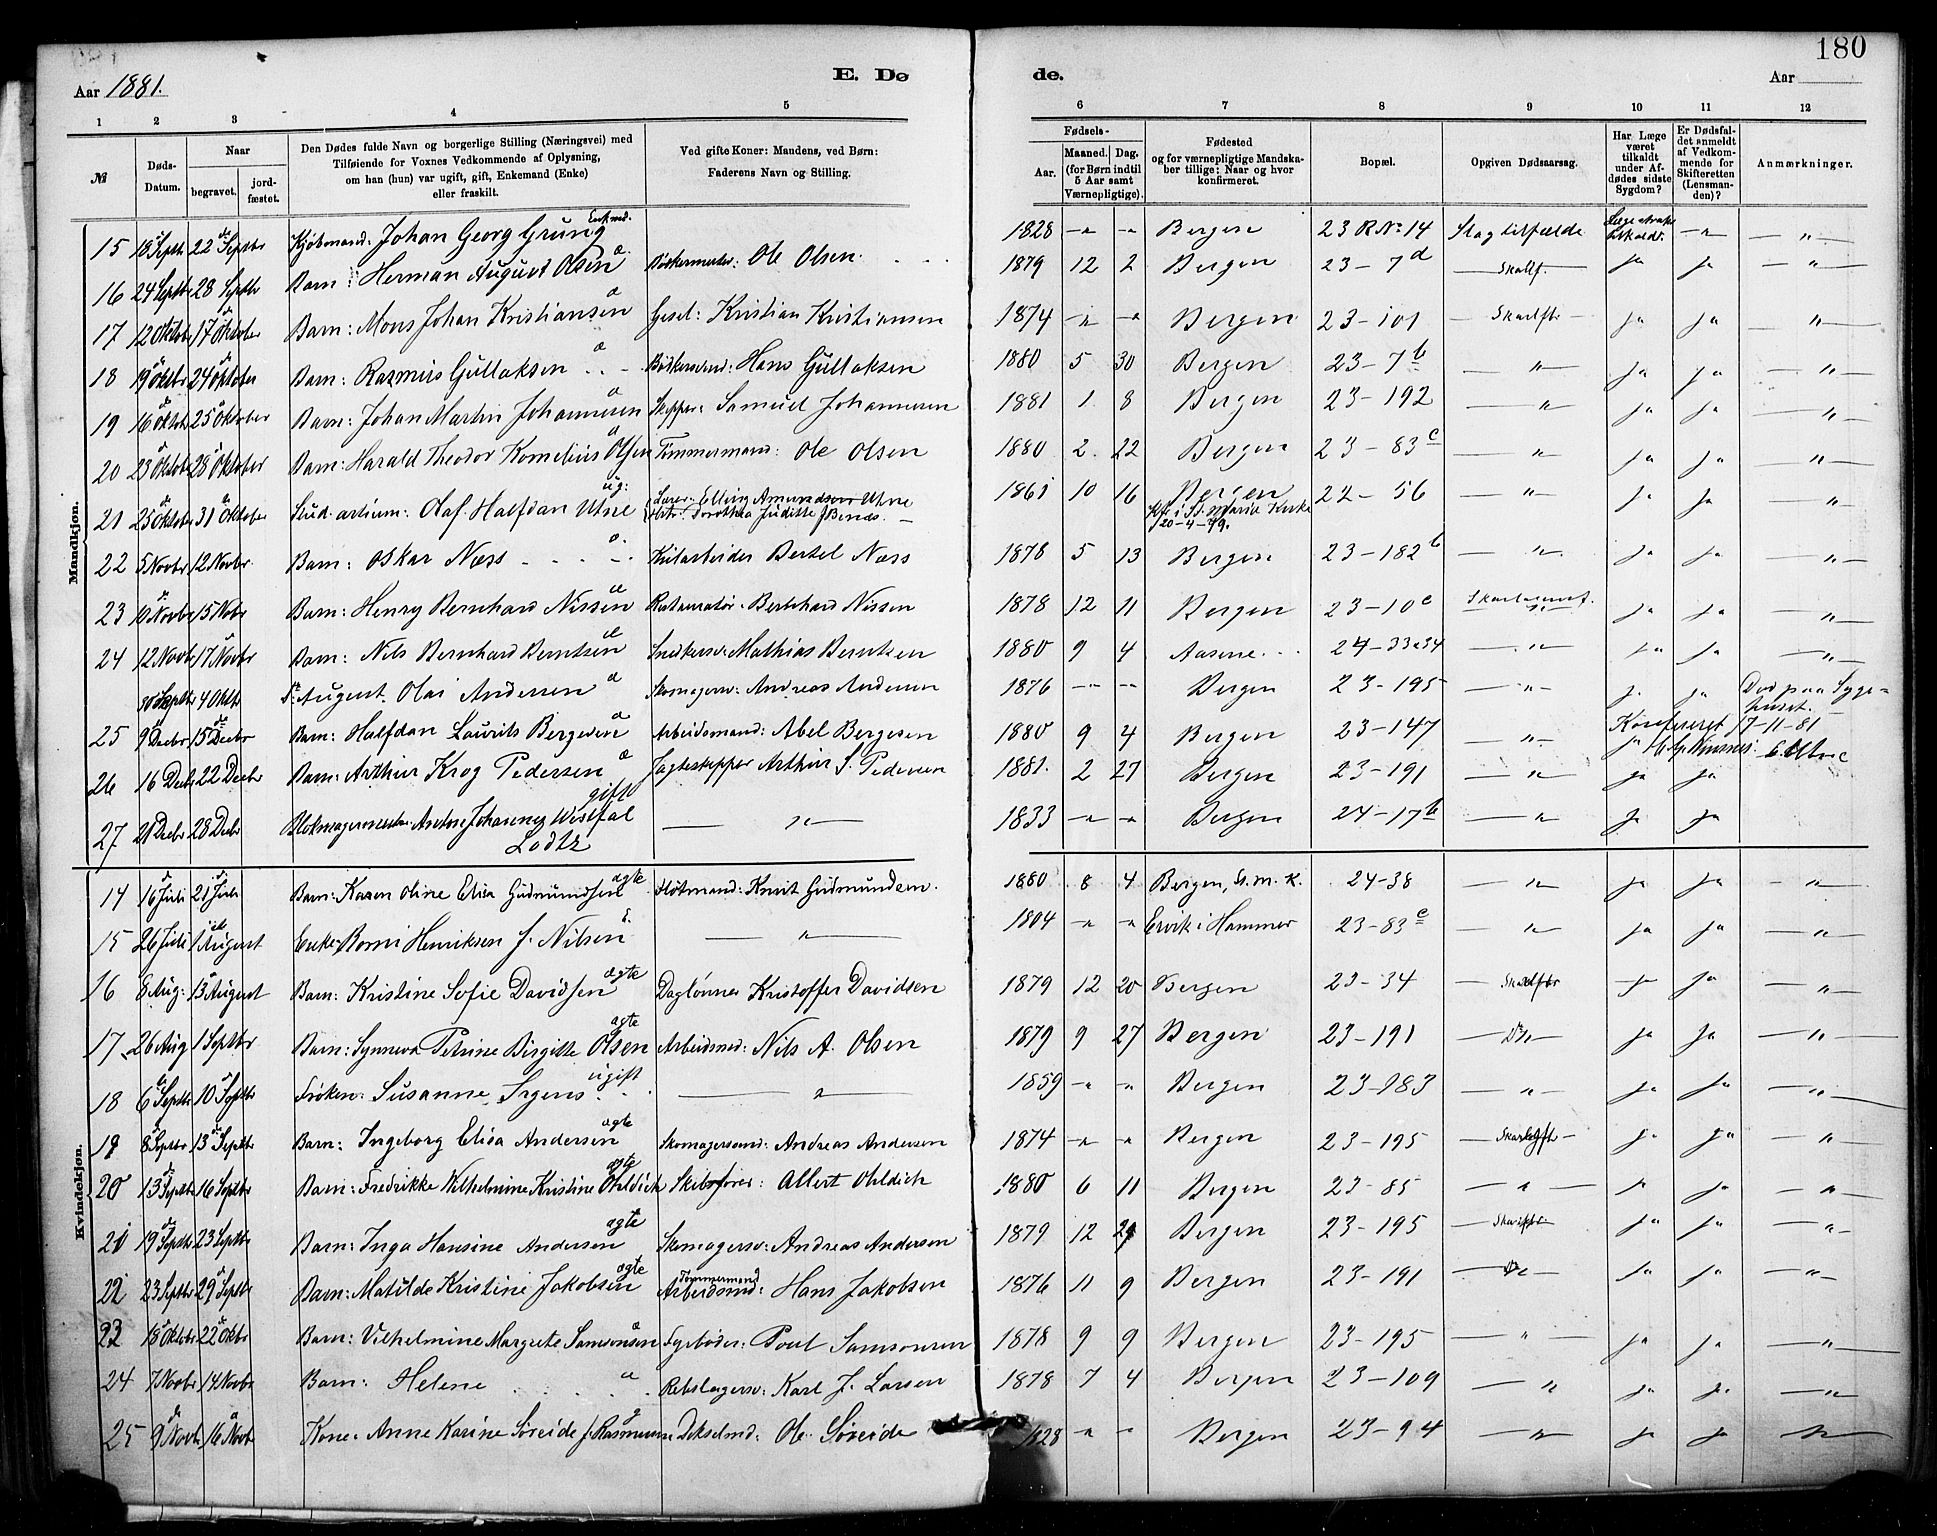 180
Aar 1881.
E. Dø
de.
Aar
1 2 3 4 5 6 7 8 9 10 11 12
№
Døds-Datum.
Naar
begravet.
jord-fæstet.
Den Dødes fulde Navn og borgerlige Stilling (Næringsvei) med
Tilføiende for Voxnes Vedkommende af Oplysning,
om han (hun) var ugift, gift, Enkemand (Enke)
eller fraskilt.
Ved gifte Koner: Mandens, ved Børn:
Faderens Navn og Stilling.
Fødsels-
Aar.
Maaned. Dag.
(for Børn indtil
5 Aar samt
Værnepligtige).
Fødested
og for værnepligtige Mandska-
ber tillige: Naar og hvor
konfirmeret.
Bopæl.
Opgiven Dødsaarsag.
Har Læge
været
tilkaldt
under Af-
dødes sidste
Sygdom?
Er Dødsfal-
det anmeldt
af Vedkom-
mende for
Skifteretten
(Lensman-
den)?
Anmærkninger.
Mandkjøn.
15 18 Septbr 22 Septbr Kjøbmand: Johan Georg Grung Enkmd. 1828 -"- -"- Bergen 23 R No 14 Slagtilfælde -"- -"-
16 24 Septbr 28 Septbr Barn: Herman August Olsen æ Bødkermester: Ole Olsen 1879 12 2 Bergen 23-7d Skarlf. ja ja -"-
17 12 Oktobr 17 Oktober Barn: Mons Johan Kristiansen æ Gesel: Kristian Kristiansen 1874 -"- -"- Bergen 23-101 Skarlfbr ja ja -"-
18 19 Oktbr 24 Oktober Barn: Rasmus Gullaksen æ Bødkersvend: Hans Gullaksen 1880 5 30 Bergen 23-7b -"- ja ja -"-
19 16 Oktbr 25 Oktober Barn: Johan Martin Johannesen æ Skipper: Samuel Johannesen 1881 1 8 Bergen 23-192 -"- ja ja -"-
20 23 Oktobr 28 Oktober Barn: Harald Theodor Kornelius Olsen æ Timmermand: Ole Olsen 1880 2 22 Bergen 23-83c -"- ja ja -"-
21 25 Oktobr 31 Oktober Stud. artium: Olaf Halfdan Utne ug: Lærer: Elling Amundsen Utne 1861 10 16 Bergen Kf. i St. Marie Kirke 20-4-79. 22-56 -"- ja ja -"-
22 5 Novbr 12 Novbr. Barn: Oskar Næss æ Kularbeider Bertel Næss 1878 5 13 Bergen 23-182b -"- ja ja -"-
23 10 Novbr 15 Nobr Barn: Henry Bernhard Nissen æ Restauratør: Bernhard Nissen 1878 12 11 Bergen 23-10c ja ja -"-
24 12 Novb 17 Novbr Barn: Nils Bernhard Berntsen æ Snedkersv: Mathias Berntsen 1880 9 4 Aasene 24-33a34 -"- ja ja -"-
30 Septbr 4 Oktbr August Olai Andersen æ Skomagersv: Andreas Andersen 1876 -"- -"- Bergen 23-195 -"- ja ja Død paa Syge-
huset.
25 9 Decbr 15 Decbr Barn: Halfdan Laurits Bergesen æ Arbeidsmand: Abel Bergesen 1880 9 4 Bergen 23-147 -"- ja Konfereret 17-11-81
26 16 Decbr 22 Decbr Barn: Arthur Krog Pedersen æ Jagteskipper Arthur S. Pedersen 1881. 2 27 Bergen 23-191 -"- ja ja
27 21 Decbr 28 Decbr Blokmagermester: Anton Johannes Westfal gift 1833 -"- -"- Bergen 24-17b -"- ja ja
Lodtz
Kvindekjøn.
14 16 Juli 21 Juli Barn: Karen Oline Elisa Gudmundsen ægte Flotmand: Knut Gudmundsen. 1880 8 4 Bergen, St. M. K. 24-38 -"- ja ja -"-
15 26 Juli 1 August Enke: Borni Henriksen f. Nilsen -"- 1804 -"- -"- Ervik i Hammer 23-83c -"- ja ja -"-
16 8 Aug: 13 August Barn: Kristine Sofie Davidsen ægte Daglønner Kristoffer Davidsen 1879 12 20 Bergen 23-34 Skarlfbr ja ja -"-
17 26 Aug 1 Septbr Barn: Synneva Petrine Birgitte Olsen ægte Arbeidsmd: Nils A. Olsen 1879 9 27 Bergen 23-191 Do ja ja -"-
18 6 Septbr 10 Septbr Frøken: Susanne Irgens ugift -"- 1859 -"- -"- Bergen 23-183 -"- ja ja -"-
19 8 Septbr 13 Septbr Barn: Ingeborg Elisa Andersen ægte Skomagersvend: Andreas Andersen 1874 -"- -"- Bergen 23-195 ja ja -"-
20 13 Septbr 16 Septbr Barn: Fredrikke Wilhelmine Kristine Ohldich ægte Skibsfører: Allert Ohldich 1880 6 11 Bergen 23-85 -"- ja ja -"-
21 19 Septbr 23 Septbr Barn: Inga Hansine Andersen ægte Skomagersv: Andreas Andersen 1879 12 Bergen 23-195 Skarlfbr ja ja -"-
22 23 Septbr 29 Septbr Barn: Matilde Kristine Jakobsen ægte Tømmermand Arbeidsmd: Hans Jakobsen 1876 11 9 Bergen 23-191 Do ja ja -"-
23 18 Oktobr 22 Oktbr Barn: Vilhelmine Margrete Samsonsen æ Fyrbøder: Poul Samsonsen 1878 9 9 Bergen 23-195 -"- ja ja -"-
24 7 Novbr 14 Novbr Barn: Helene æ Rebslagersv: Karl J. Larsen 1878 7 4 Bergen 23-109 -"- ja ja -"-
25 9 Novbr 16 Novbr Kone: Anne Karine Søreide f. Rasmussen g Ole Søreide 1828 -"- -"- Bergen 23-94 -"- ja ja -"-